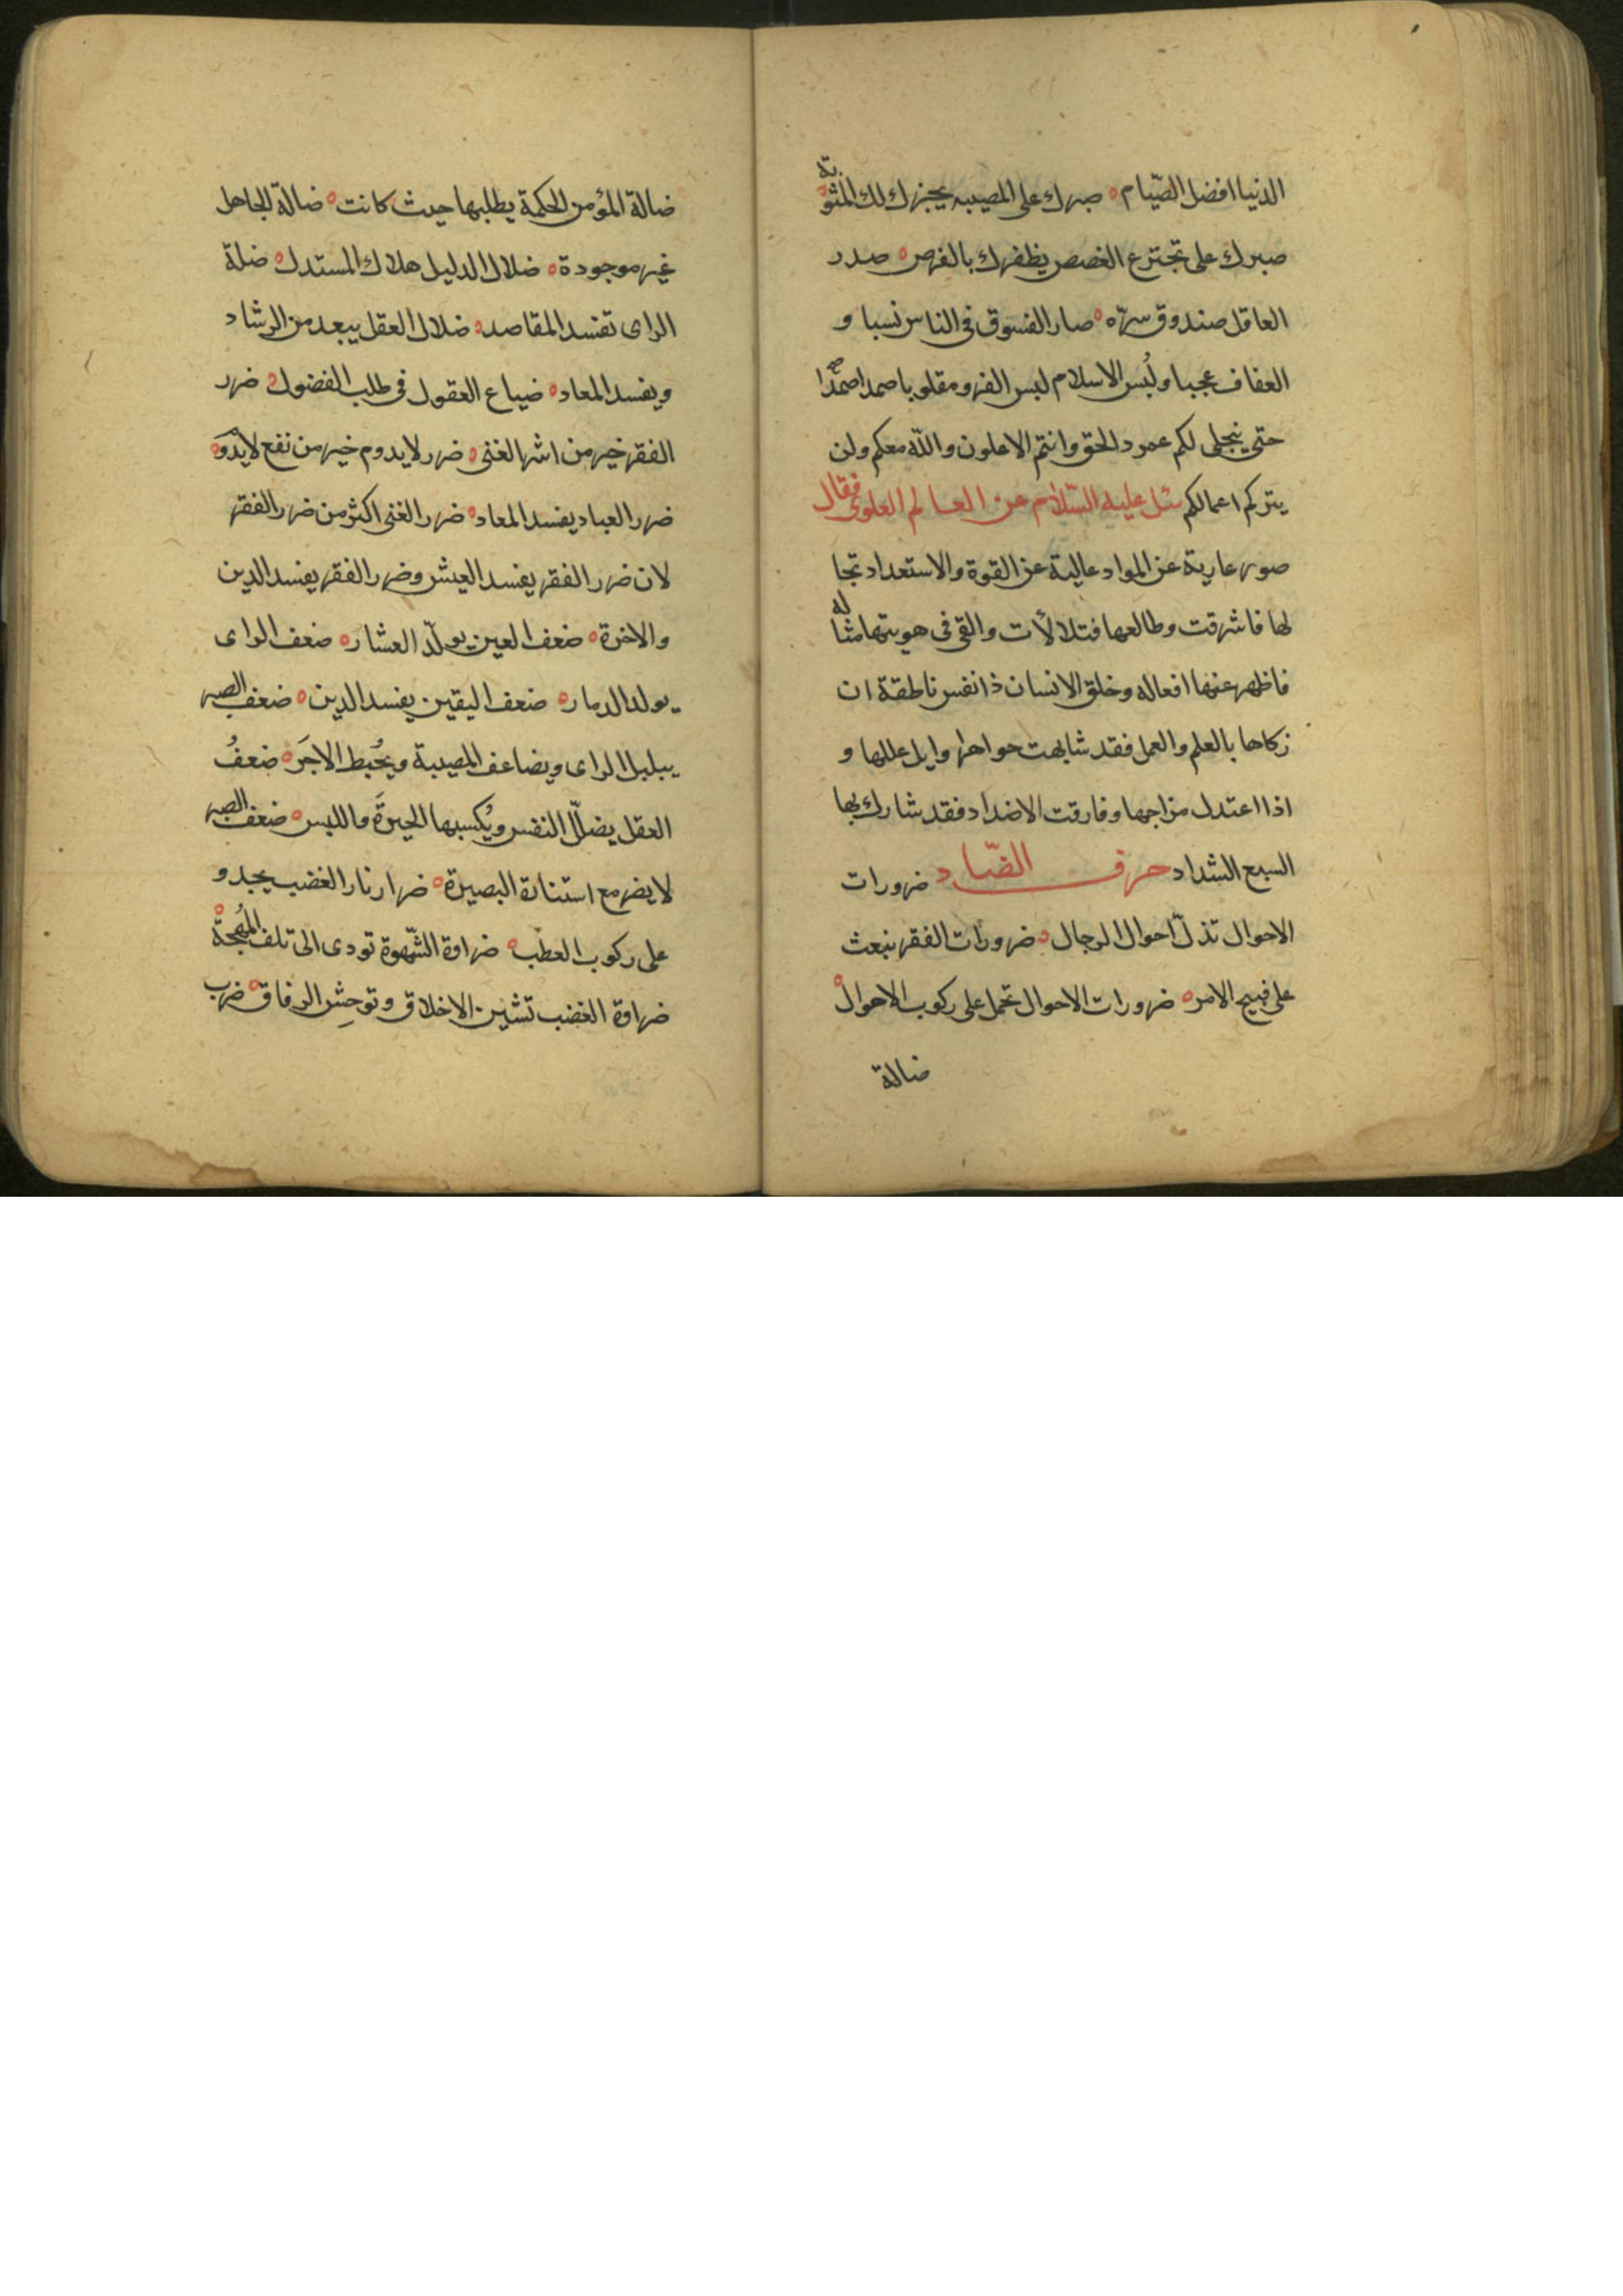 الدنيا افضل الصّيام ه صبرك على المصيبه يجزرك لك المثوبة
صبرك على تجترع الغصص يظفرك بالفرص ه صدر
العاقل صندوق سرّه ه صار الفسوق في الناس نسبا و
العفاف عجبا ولُبس الاسلام لبس الفرو مقلوبا صمدا صمدا
حتى ينجلى لكم عمود الحق وانتم الاعلون والله معكم ولن
يتركم اعمالكم سئل عليه السّلام عن العالم العلوى فقال
صور عارية عن المواد عالية عن القوة والاستعداد تجلا
لها فاشرقت وطالعها فتلالأت والقى فى هويتها مثاله
فاظهر عنها افعاله وخلق الانسان ذا نفس ناطقة ان
زكاها بالعلم والعمل فقد شابهت جواهر اوايل عللها و
اذا اعتدل مزاجها وفارقت الاضداد فقد شارك بها
السبع الشداد حرف الضّاد ضرورات
الاحوال تذلّ احوال الرجال ه ضرورات الفقر نبعث
على قبيح الامر ه ضرورات الاحوال تحمل على ركوب الاحوال ه
ضالة
ضالة المؤمن الحكمة يطلبها حيث كانت ه ضالة الجاهل
غير موجودة ه ضلال الدليل هلاك المستدل ه ضلة
الراى تفسد المقاصد ه ضلال العقل يبعد من الرشاد
ويفسد المعاد ه ضياع العقول فى طلب الفضول ه ضرر
الفقر خير من اشر الغنى ه ضرر لايدوم خير من نفع لايدوم ه
ضرر العباد يفسد المعاد ه ضرر الغنى اكثر من ضرر الفقر
لان ضرر الفقر يفسد العيش وضرر الفقر يفسد الدين
والاخرة ه ضعف العين يولّد العشار ه ضعف الراى
يولد الدمار ه ضعف اليقين يفسد الدين ه ضعف الصبر
يبلبل الراى ويضاعف المصيبة ويُحبط الاجَر ه ضعفُ
العقل يضلّل النفس ويُكسبها الحيرَة واللبس ه ضعف الصبر
لا يضر مع استنانة البصيرة ه ضرار نار الغضب يحدو
على ركوب العطب ه ضراوة الشّهوة تودى الى تلف المُهجة ه
ضراوة الغضب تشين الاخلاق وتوحِش الرفاق ه ضرب